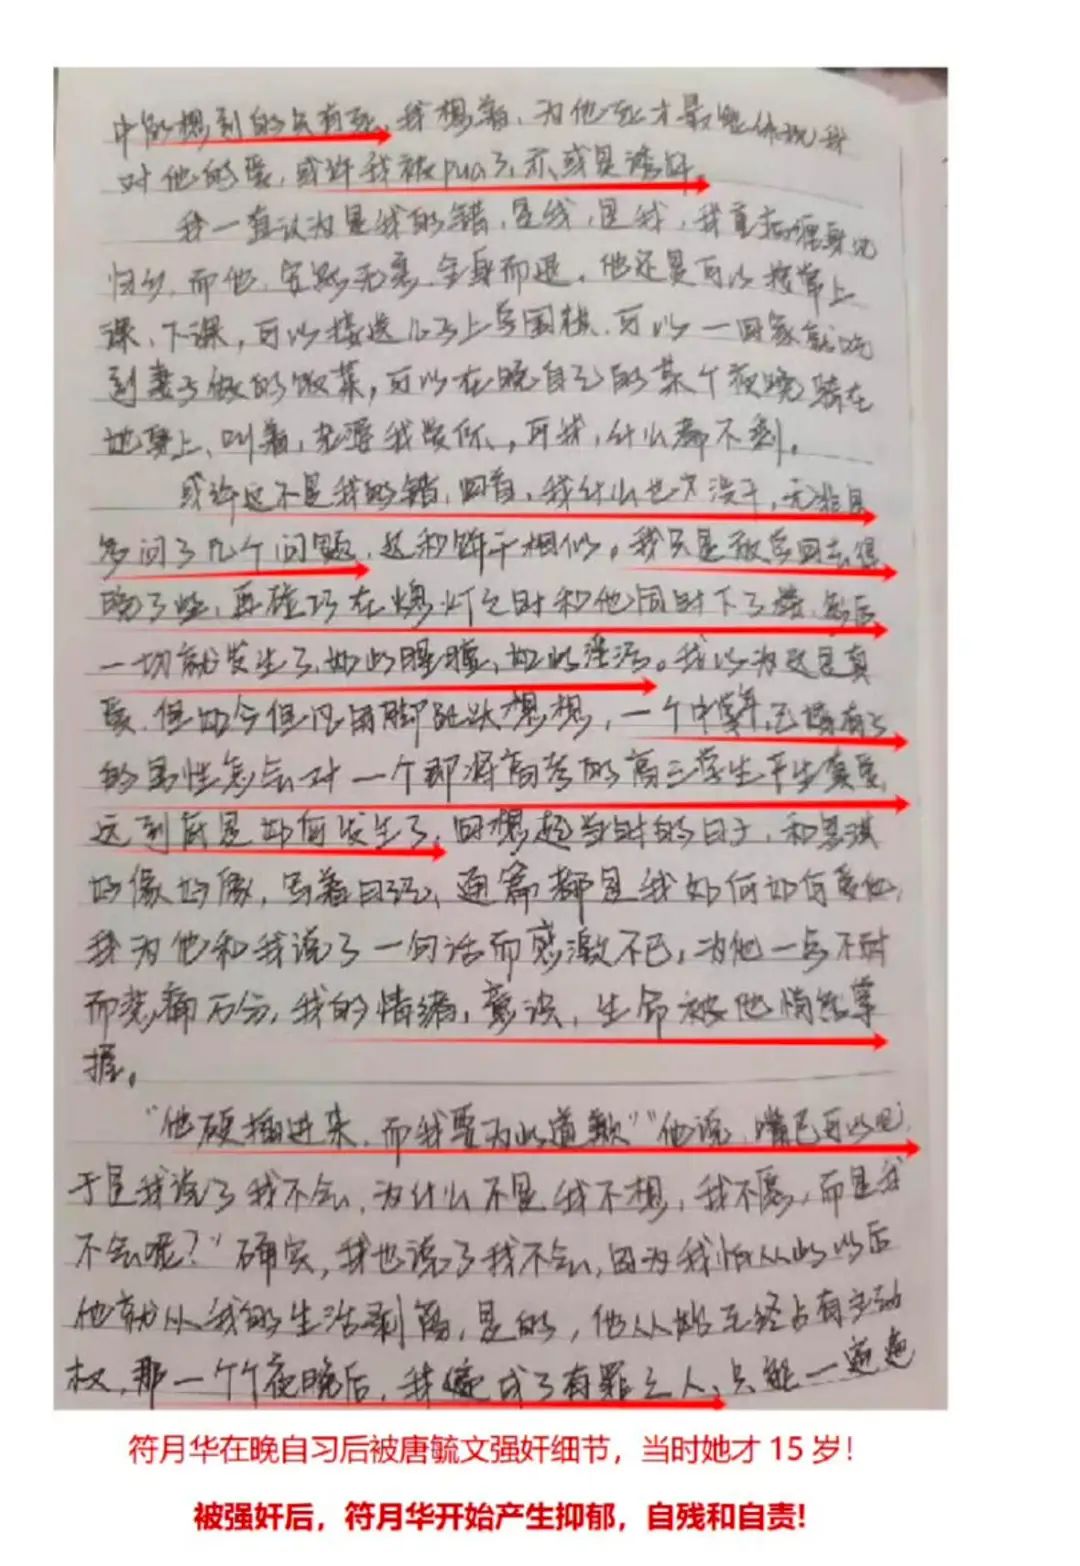 中的想到的只有死，我想着，为他死才最能体现我
对他的爱，或许我被pua了，亦或是诱奸。
我一直认为是我的错，是我，是我，我直
归乡，而他，安然无恙，全身而退，他还是可以接常上
课、下课，可以接送儿子上学围棋，可以一回家就吃
到妻子做的饭菜，可以在晚自习的某个夜晚骑在
她身上，叫着，老婆我爱你，可我，什么都不剩。
或许这不是我的错，回首，我什么也没干，无非是
多问了几个问题，这和饼干相似。我只是放学回去得
晚了些，再碰巧在熄灯之时和他同时下了楼，然后
一切就发生了，如此腥膻，如此淫污。我以为这是真
爱，但如今但凡用脚趾头想想，一个中年，已婚有子
的男性怎会对一个即将高考的高三学生产生真爱，
这到底是如何发生了，回想起当时的日子，和思琪
好像好像，写着日记，通篇都是我如何如何爱他，
我为他和我说了一句话而感激不已，为他一点不耐
而悲痛万分，我的情绪，意识，生命被他悄然掌
握。
“他硬插进来，而我要为此道歉”“他说，嘴巴可以吧，
于是我说了我不会，为什么不是我不想，我不愿，而是我
不会呢？”确实，我也说了我不会，因为我怕从此以后
他就从我的生活剥离，是的，他从始至终占有主动
权，那一个个夜晚后，我便成了有罪之人，只能一遍遍
符月华在晚自习后被唐毓文强奸细节，当时她才 15 岁！
被强奸后，符月华开始产生抑郁，自残和自责!